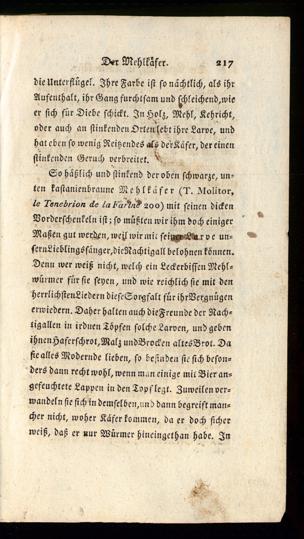 Der Mehlkäfer. 217
die Unterflügel. Ihre Farbe ist so nächtlich, als ihr
Aufenthalt, ihr Gang furchtsam und schleichend, wie
er sich für Diebe schickt. In Holz, Mehl, Kehricht,
oder auch an stinkenden Orten lebt ihre Larve, und
hat eben so wenig Reitzendes als der Käfer, der einen
stinkenden Geruch verbreitet.
So häßlich und stinkend der oben schwarze, un-
ten kastanienbraune Mehlkäfer (T. Molitor,
le Tenebrion de la Farine 200) mit seinen dicken
Vorderschenkeln ist; so müßten wir ihm doch einiger
Maßen gut werden, weil wir mit seiner Larve un-
sern Lieblingssänger, die Nachtigall belohnen können.
Denn wer weiß nicht, welch ein Leckerbissen Mehl-
würmer für sie seyen, und wie reichlich sie mit den
herrlichsten Liedern diese Sorgfalt für ihr Vergnügen
erwiedern. Daher halten auch die Freunde der Nach-
tigallen in irdnen Töpfen solche Larven, und geben
ihnen Haferschrot, Malz und Brocken altes Brot. Da
sie alles Modernde lieben, so befinden sie sich beson-
ders dann recht wohl, wenn man einige mit Bier an-
gefeuchtete Lappen in den Topf legt. Zuweilen ver-
wandeln sie sich in demselben, und dann begreift man-
cher nicht, woher Käfer kommen, da er doch sicher
weiß, daß er nur Würmer hineingethan habe. In